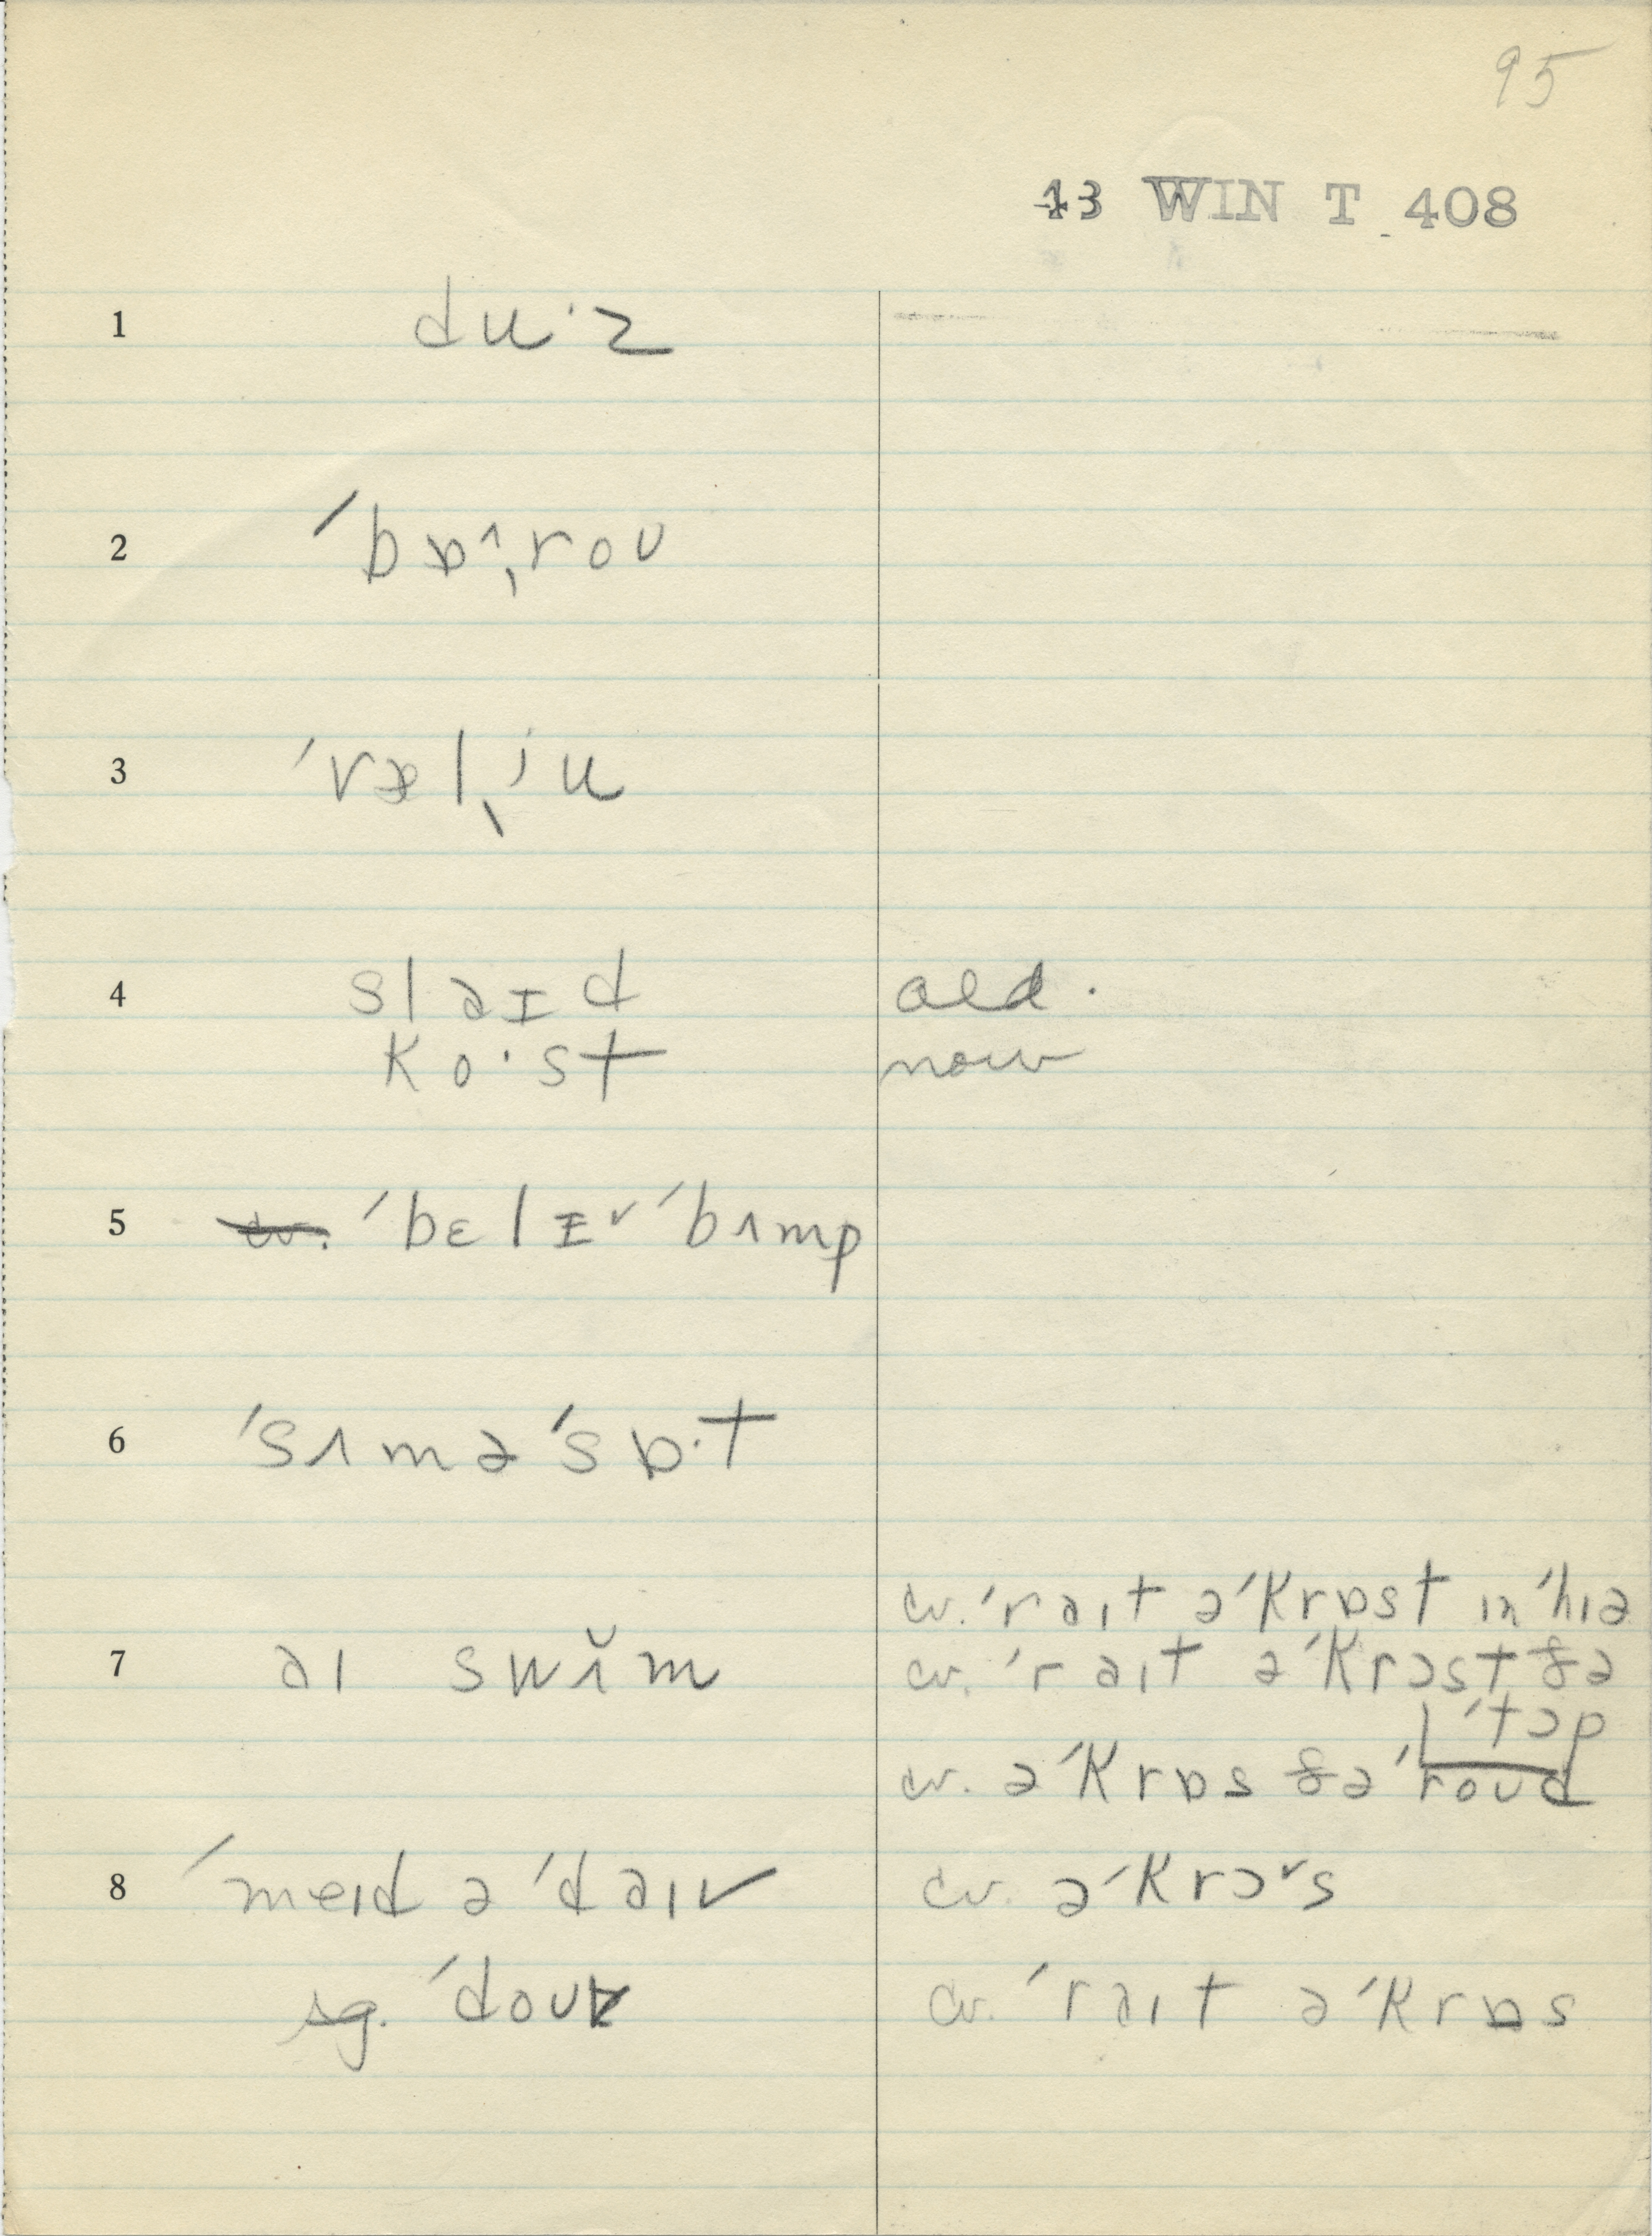 95
43 WIN T 408
1 du·z
2 ˈbɒ^ˌroʊ
3 ˈvæl ˌju
4 sləɪd old.
ko·st now
5 cv. ˈbɛlɪ˅ ˈbʌmp
6 ˈsʌməˈsɒ·t
cv. ˈrəɪt əˈkrɒst ɪn ˈhɪə
7 əɪ swʌ̆m cv. ˈrəɪt əˈkrɔst ðə
ˈtɔp
cv. əˈkrɒs ðə ˈroʊd
8 ˈmeɪd ə ˈdəɪv cv. əˈkrɔ˅s
sg. ˈdoʊv cv. ˈrəɪt əˈkrɒs